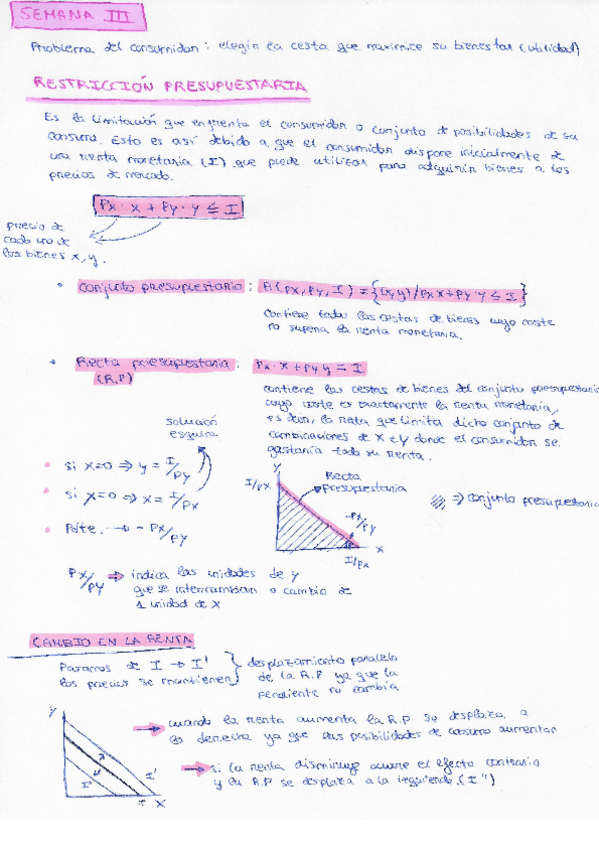 SEMANA III
Problema del consumidor: elegir la cesta que maximice su bienestar (utilidad)
RESTRICCIÓN PRESUPUESTARIA
Es la limitación que enfrenta el consumidor o conjunto de posibilidades de su
consumo. Esto es así debido a que el consumidor dispone inicialmente de
una renta monetaria (I) que puede utilizar para adquirir bienes a los
precios de mercado.
Px · x + Py · y ≤ I
precio de
cada uno de
los bienes x, y.
• Conjunto presupuestario: B(Px, Py, I) = {(x,y)/Px x + Py y ≤ I}
contiene todas las cestas de bienes cuyo coste
no supera la renta monetaria.
• Recta presupuestaria: Px · x + Py y = I
(R.P)
contiene las cestas de bienes del conjunto presupuestario
cuyo coste es exactamente la renta monetaria,
es decir, la recta que limita dicho conjunto de
combinaciones de x e y donde el consumidor se
gastaría toda su renta.
solución
esquina
• si x=0 ⇒ y = I/Py
• si y=0 ⇒ x = I/Px
• Pdte. → - Px/Py
Y
I/Px
Recta
Presupuestaria
-Px/Py
X
I/Px
⇒ conjunto presupuestario
Px/Py ⇒ indica las unidades de y
que se intercambian a cambio de
1 unidad de x
CAMBIO EN LA RENTA
Pasamos de I → I'
los precios se mantienen
desplazamiento paralelo
de la R.P ya que la
pendiente no cambia
Y
I''
I'
I
X
→ cuando la renta aumenta la R.P se desplaza a
la derecha ya que las posibilidades de consumo aumentan
→ si la renta disminuye ocurre el efecto contrario
y la R.P se desplaza a la izquierda (I'')